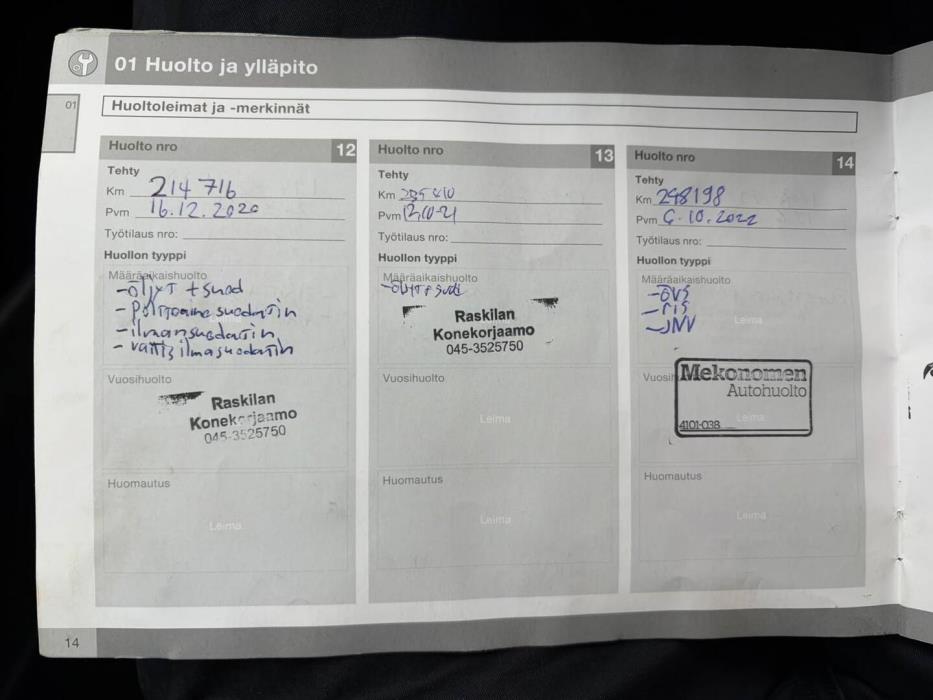 01 Huolto ja ylläpito
01
Huoltoleimat ja -merkinnät
Huolto nro 12
Tehty
Km 214 716
Pvm 16.12.2020
Työtilaus nro:
Huollon tyyppi
Määräaikaishuolto
-öljyt + suod
- Polttoaine suodatin
- ilmansuodatin
- raitis ilmasuodatin
Vuosihuolto
Raskilan
Konekorjaamo
045-3525750
Huomautus
Leima
Huolto nro 13
Tehty
Km
Pvm
Työtilaus nro:
Huollon tyyppi
Määräaikaishuolto
Raskilan
Konekorjaamo
045-3525750
Vuosihuolto
Leima
Huomautus
Leima
Huolto nro 14
Tehty
Km 248198
Pvm 6.10.2022
Työtilaus nro:
Huollon tyyppi
Määräaikaishuolto
Leima
Mekonomen
Autohuolto
Leima
4101-038
Huomautus
Leima
14